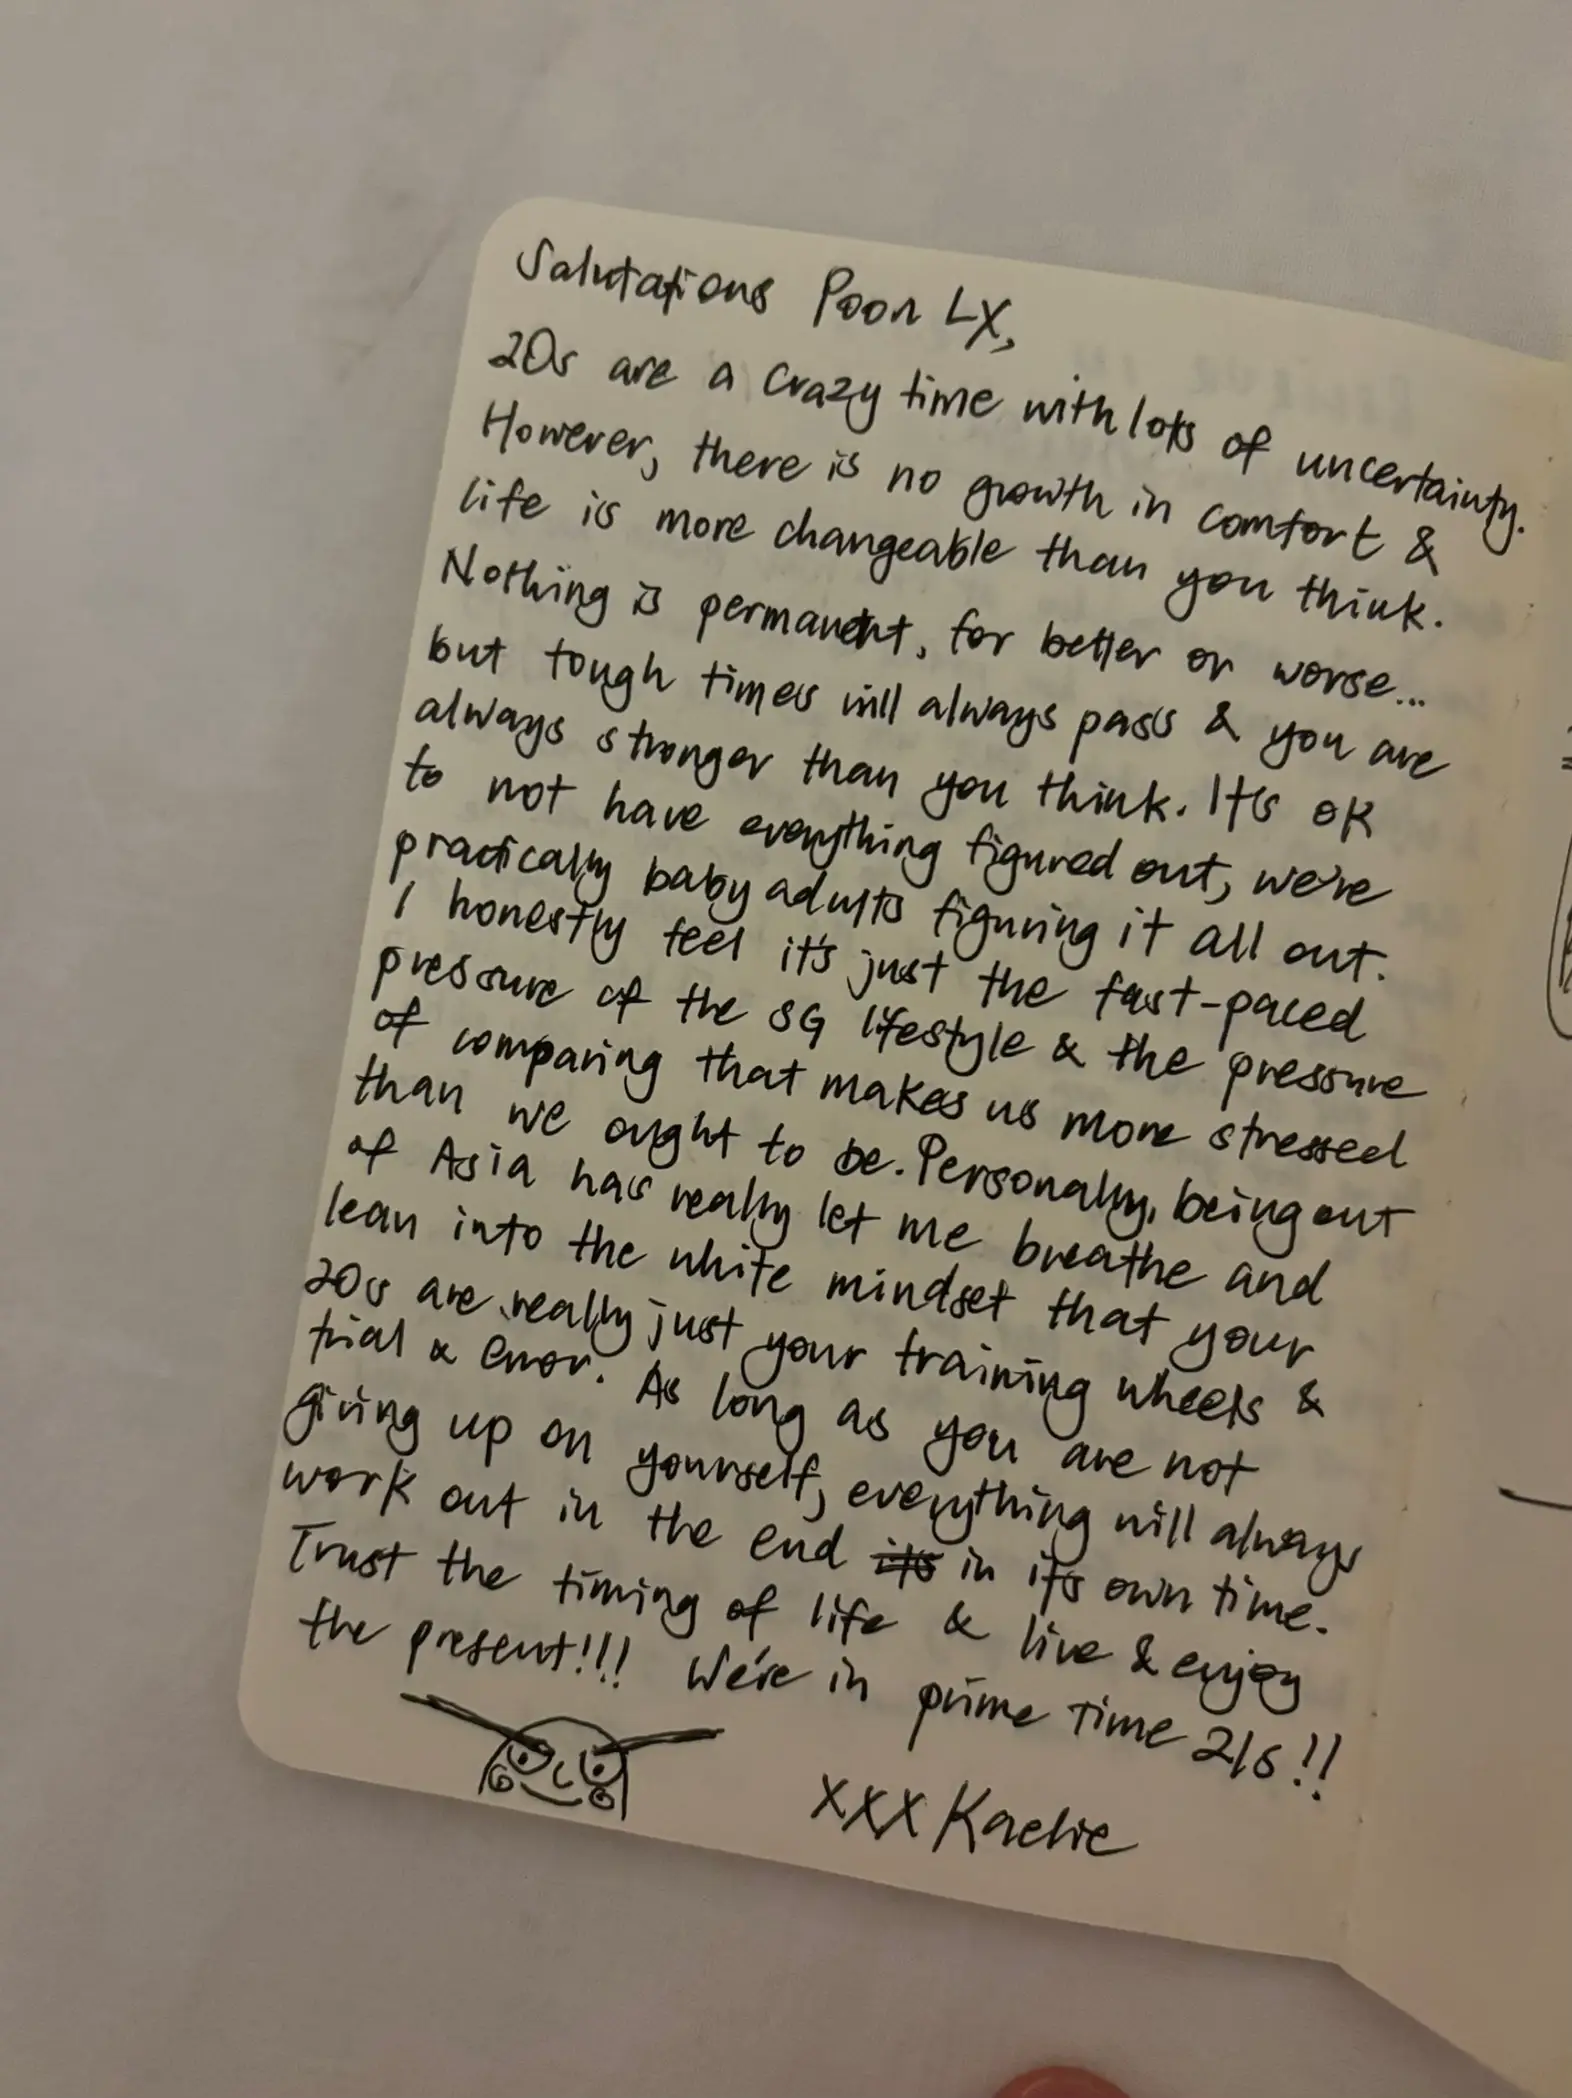 Salutations Poon LX,
20s are a crazy time with lots of uncertainty.
However, there is no growth in comfort &
life is more changeable than you think.
Nothing is permanent, for better or worse...
but tough times will always pass & you are
always stronger than you think. It's ok
to not have everything figured out, we're
practically baby adults figuring it all out.
I honestly feel it's just the fast-paced
pressure of the SG lifestyle & the pressure
of comparing that makes us more stressed
than we ought to be. Personally, being out
of Asia has really let me breathe and
lean into the white mindset that your
20s are really just your training wheels &
trial & error. As long as you are not
giving up on yourself, everything will always
work out in the end its in it's own time.
Trust the timing of life & live & enjoy
the present!!! We're in prime time 21s!!
xxx Kaelie